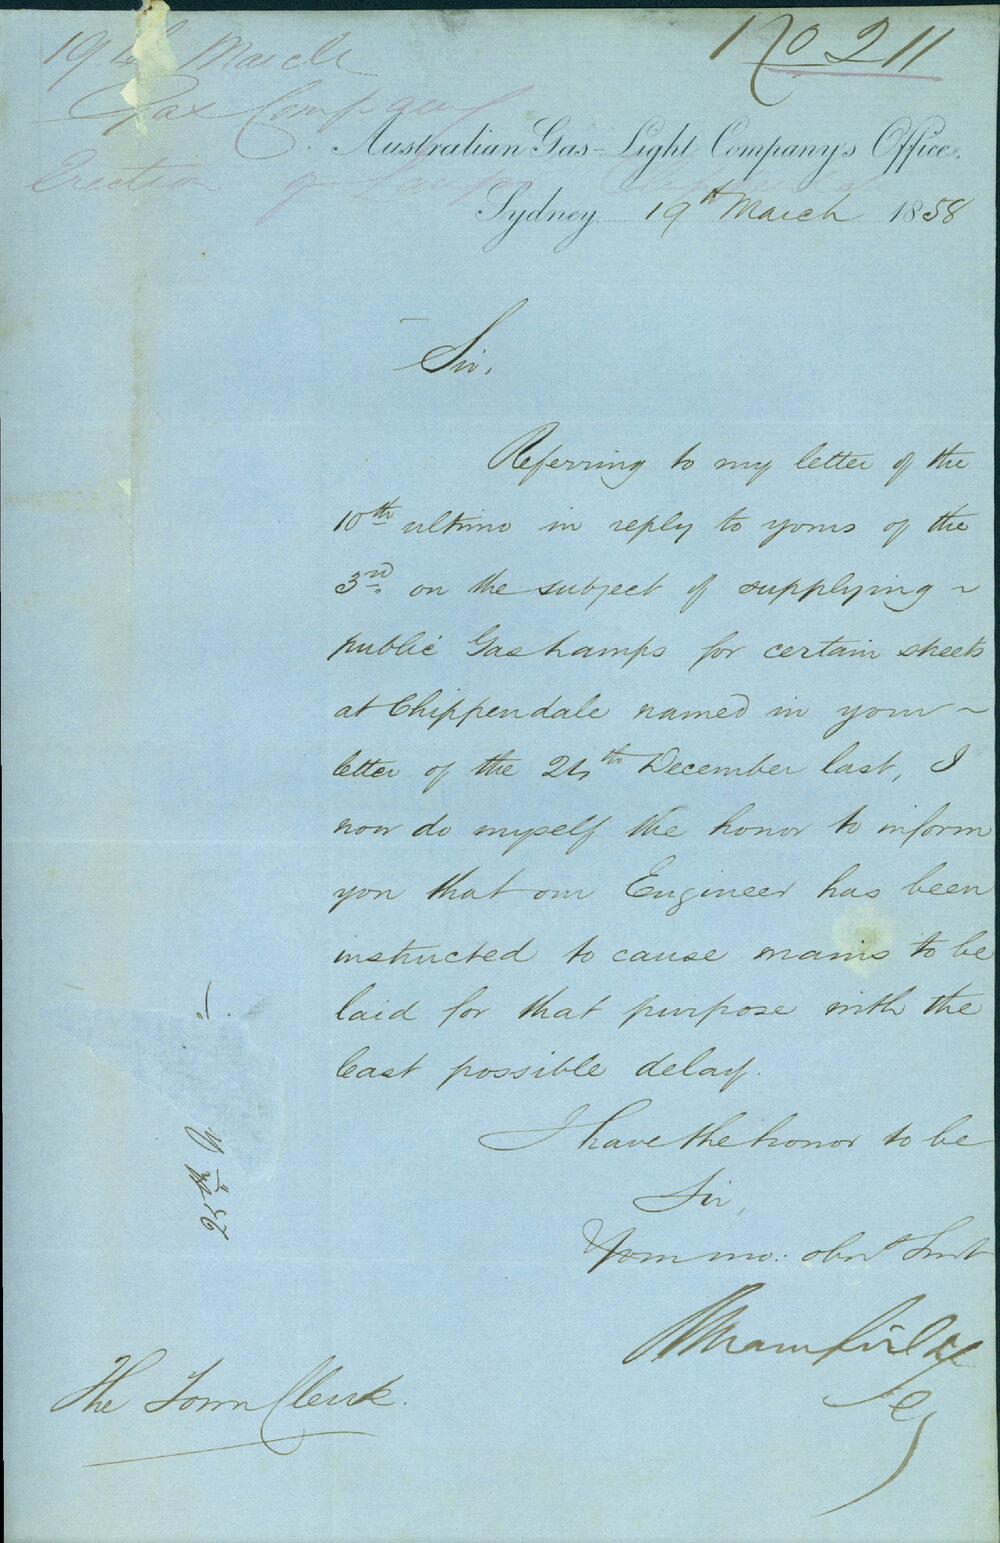 No 211
19th March
Gas Company
Erection of Lamps Chippendale
Australian Gas-Light Company's Office,
Sydney 19th March 1858
Sir,
Referring to my letter of the
10th ultimo in reply to yours of the
3rd on the subject of supplying ~
public Gas Lamps for certain streets
at Chippendale named in your ~
letter of the 24th December last, I
now do myself the honor to inform
you that our Engineer has been
instructed to cause mains to be
laid for that purpose with the
least possible delay.
I have the honor to be
Sir,
Your mo: obnt Servt
Mansfield
Sey
The Town Clerk.